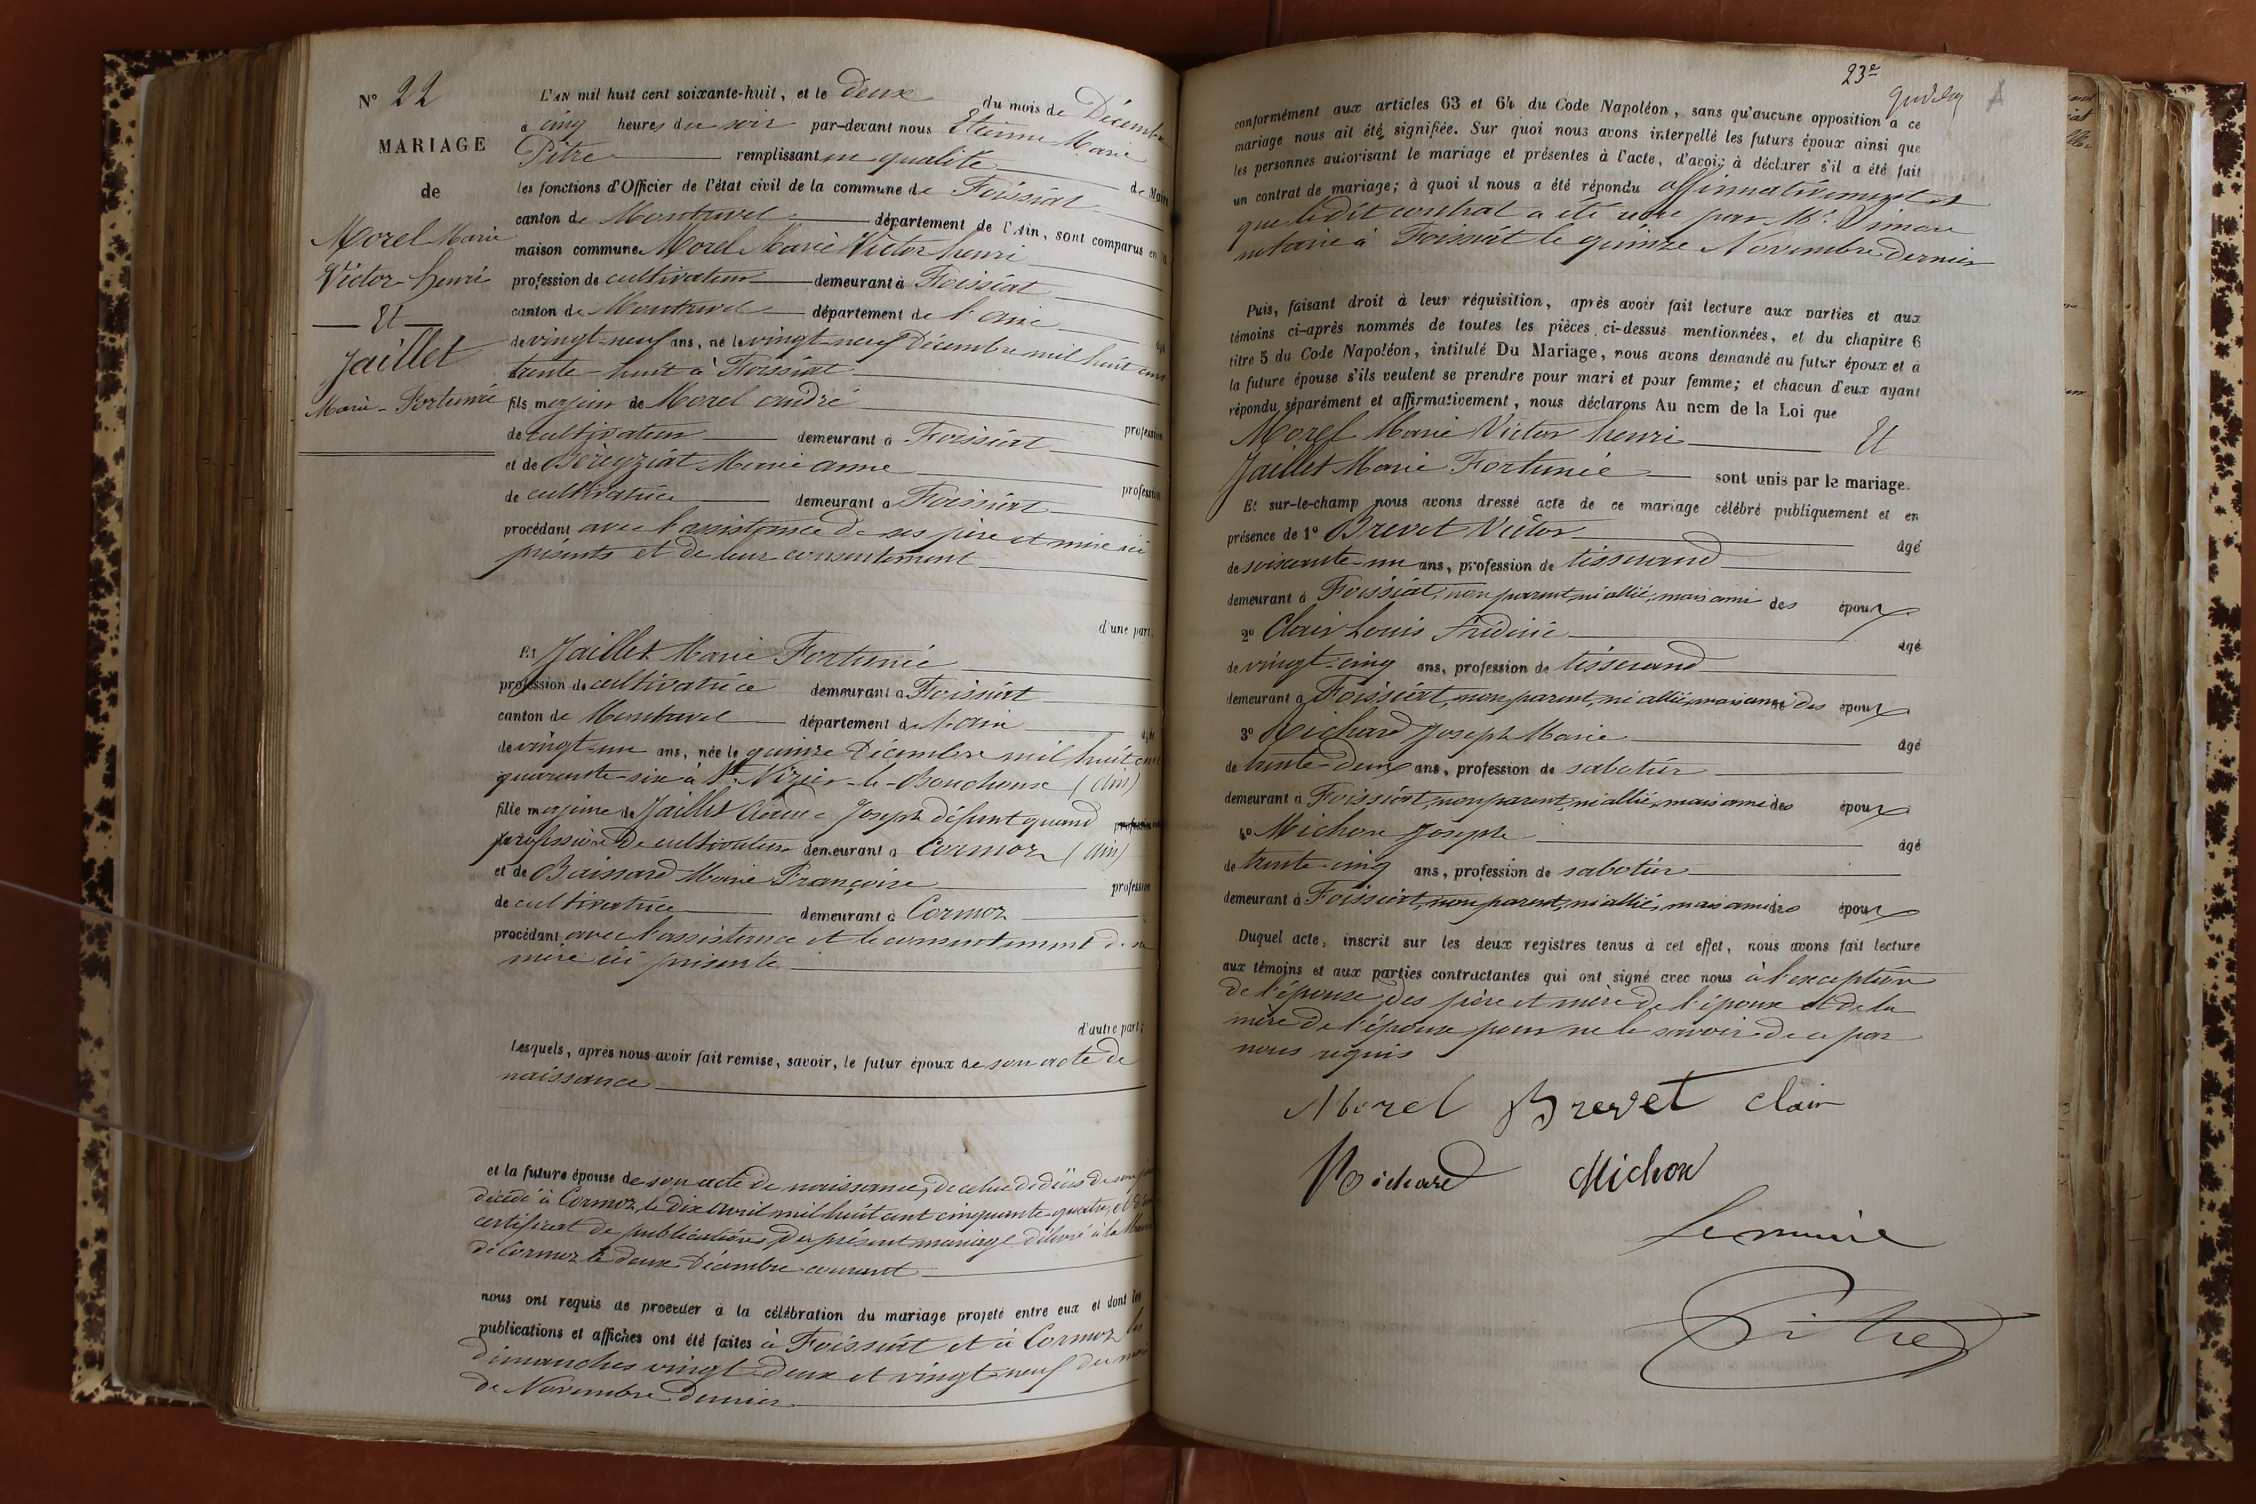 N° 22
MARIAGE
de
Morel Marie
Victor henri
Et
Jaillet
Marie-Fortunée
L'AN mil huit cent soixante-huit, et le deux du mois de Décembre
à cinq heures du soir par-devant nous Etienne Marie
Pitre remplissant en qualité de Maire
les fonctions d'Officier de l'état civil de la commune de Foissiat
canton de Montrevel département de l'Ain, sont comparus en la
maison commune Morel Marie Victor henri
profession de cultivateur demeurant à Foissiat
canton de Montrevel département de l'ain
de vingt-neuf ans, né le vingt-neuf Décembre mil huit cent
trente-huit à Foissiat
fils majeur de Morel andré profession
de cultivateur demeurant à Foissiat
et de Bereyziat Marie anne profession
de cultivatrice demeurant à Foissiat
procédant avec l'assistance de ses père et mère ici
présents et de leur consentement
d'une part,
Et Jaillet Marie Fortunée
profession de cultivatrice demeurant à Foissiat
canton de Montrevel département de l'ain
de vingt-un ans, née le quinze Décembre mil huit cent
quarante-six à St. Nizier-le-Bouchoux (ain)
fille majeure de Jaillet Claude Joseph défunt quand
profession de cultivateur demeurant à Cormoz (ain)
et de Buissard Marie Françoise profession
de cultivatrice demeurant à Cormoz
procédant avec l'assistance et le consentement de sa
mère ici présente
d'autre part;
Lesquels, après nous avoir fait remise, savoir, le futur époux de son acte de
naissance
et la future épouse de son acte de naissance, de celui de décès de son père
décédé à Cormoz, le dix avril mil huit cent cinquante-quatre, et du
certificat de publications du présent mariage délivré à la Mairie
de Cormoz le deux Décembre courant
nous ont requis de procéder à la célébration du mariage projeté entre eux et dont les
publications et affiches ont été faites à Foissiat et à Cormoz les
dimanches vingt-deux et vingt-neuf du mois
de Novembre dernier
23e
conformément aux articles 63 et 64 du Code Napoléon, sans qu'aucune opposition à ce
mariage nous ait été signifiée. Sur quoi nous avons interpellé les futurs époux ainsi que
les personnes autorisant le mariage et présentes à l'acte, d'avoir à déclarer s'il a été fait
un contrat de mariage; à quoi il nous a été répondu affirmativement et
que ledit contrat a été reçu par Me
notaire à Foissiat le quinze Novembre dernier
Puis, faisant droit à leur réquisition, après avoir fait lecture aux parties et aux
témoins ci-après nommés de toutes les pièces ci-dessus mentionnées, et du chapitre 6
titre 5 du Code Napoléon, intitulé Du Mariage, nous avons demandé au futur époux et à
la future épouse s'ils veulent se prendre pour mari et pour femme; et chacun d'eux ayant
répondu séparément et affirmativement, nous déclarons Au nom de la Loi que
Morel Marie Victor henri Et
Jaillet Marie Fortunée sont unis par le mariage.
Et sur-le-champ nous avons dressé acte de ce mariage célébré publiquement et en
présence de 1° Brevet Victor âgé
de soixante-un ans, profession de tisserand
demeurant à Foissiat, non parent, ni allié, mais ami des époux
2° Clair Louis frédéric âgé
de vingt-cinq ans, profession de tisserand
demeurant à Foissiat, non parent, ni allié, mais ami des époux
3° Richard Joseph Marie âgé
de trente-deux ans, profession de sabotier
demeurant à Foissiat, non parent, ni allié, mais ami des époux
4° Michon Joseph âgé
de trente-cinq ans, profession de sabotier
demeurant à Foissiat, non parent, ni allié, mais ami des époux
Duquel acte, inscrit sur les deux registres tenus à cet effet, nous avons fait lecture
aux témoins et aux parties contractantes qui ont signé avec nous à l'exception
de l'épouse, des père et mère de l'époux et de la
mère de l'épouse pour ne le savoir de ce par
nous requis
Morel Brevet Clair
Richard Michon
Le maire
Pitre